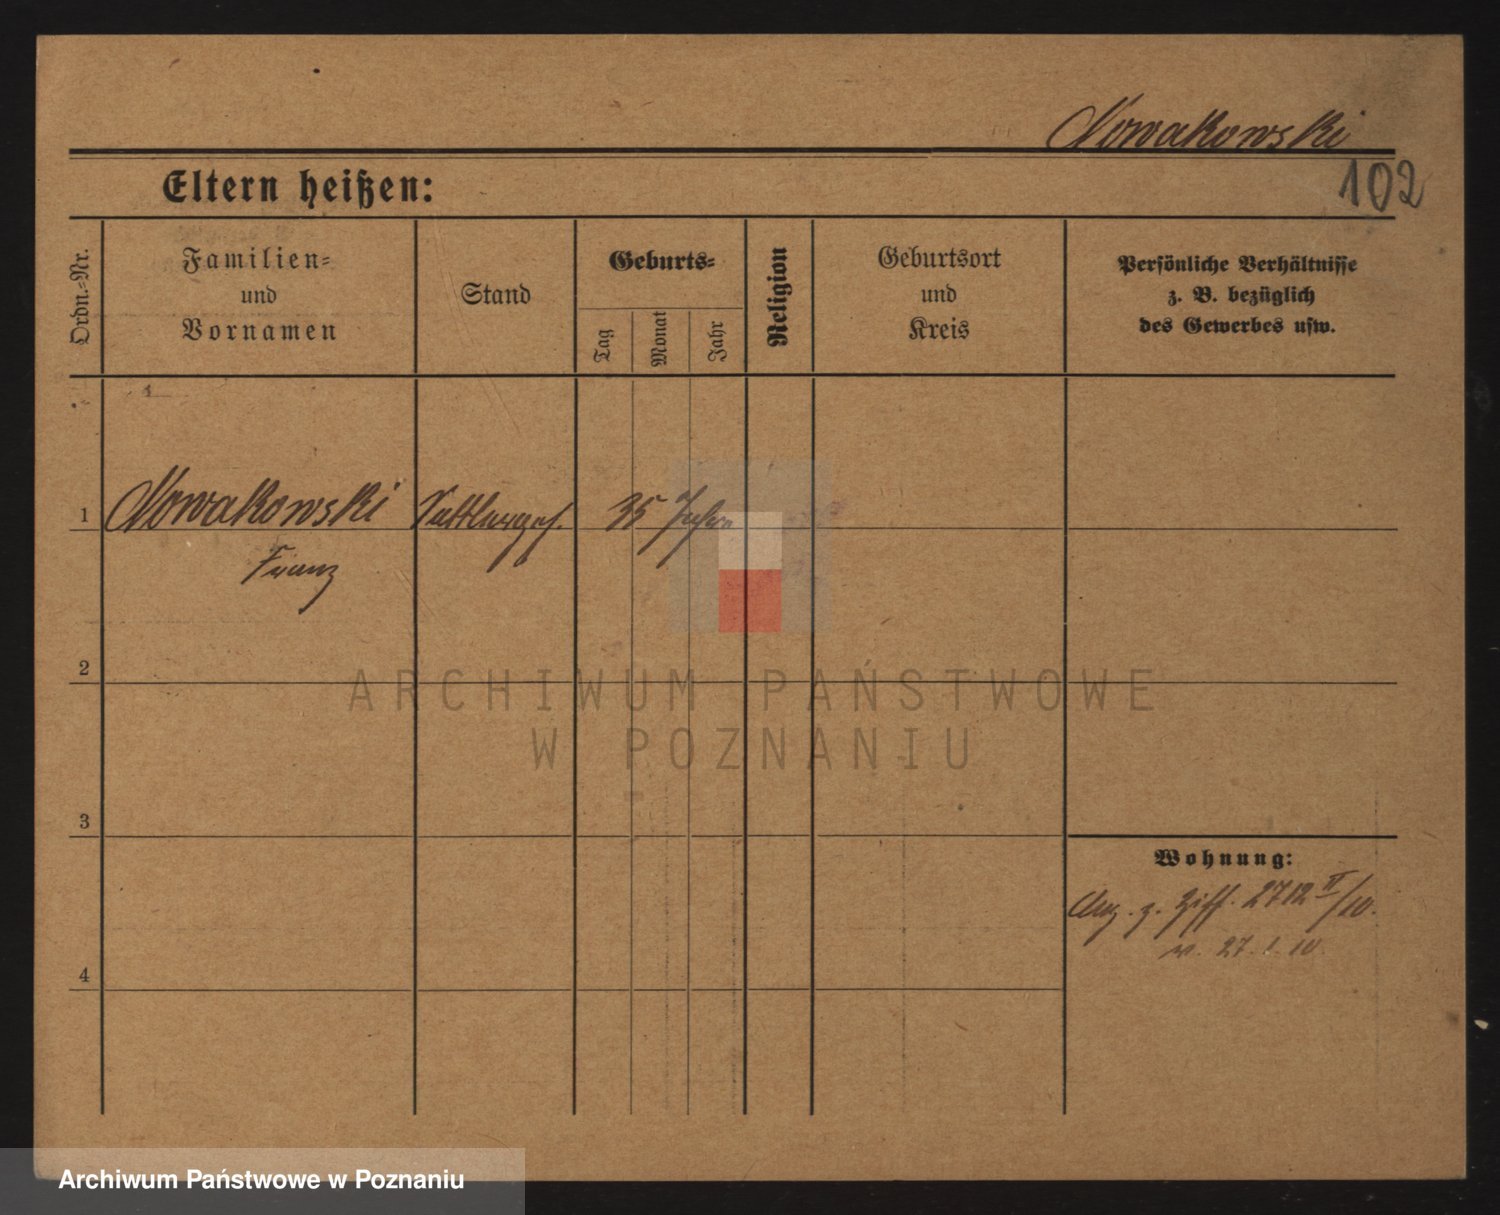 Nowakowski
102
Eltern heißen:
Ordn.-Nr.
Familien-
und
Vornamen
Stand
Geburts-
Tag
Monat
Jahr
Religion
Geburtsort
und
Kreis
Persönliche Verhältnisse
z. B. bezüglich
des Gewerbes usw.
1
Nowakowski
Sattlerges.
35 Jahre
Franz
2
ARCHIWUM PAŃSTWOWE
W POZNANIU
3
Wohnung:
z. Ziff. 2712 II/10.
27. 1. 10
4
Archiwum Państwowe w Poznaniu